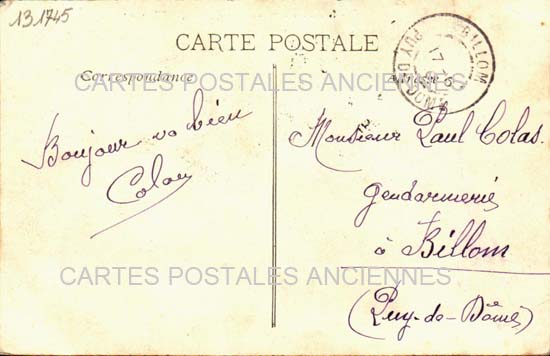 131745
CARTE POSTALE
Correspondance
Adresse
BILLOM
PUY DE DOME
17
CARTES POSTALES ANCIENNES
Bonjour va bien
Colas
Monsieur Paul Colas
Gendarmerie
à Billom
(Puy-de-Dôme)
CARTES POSTALES ANCIENNES